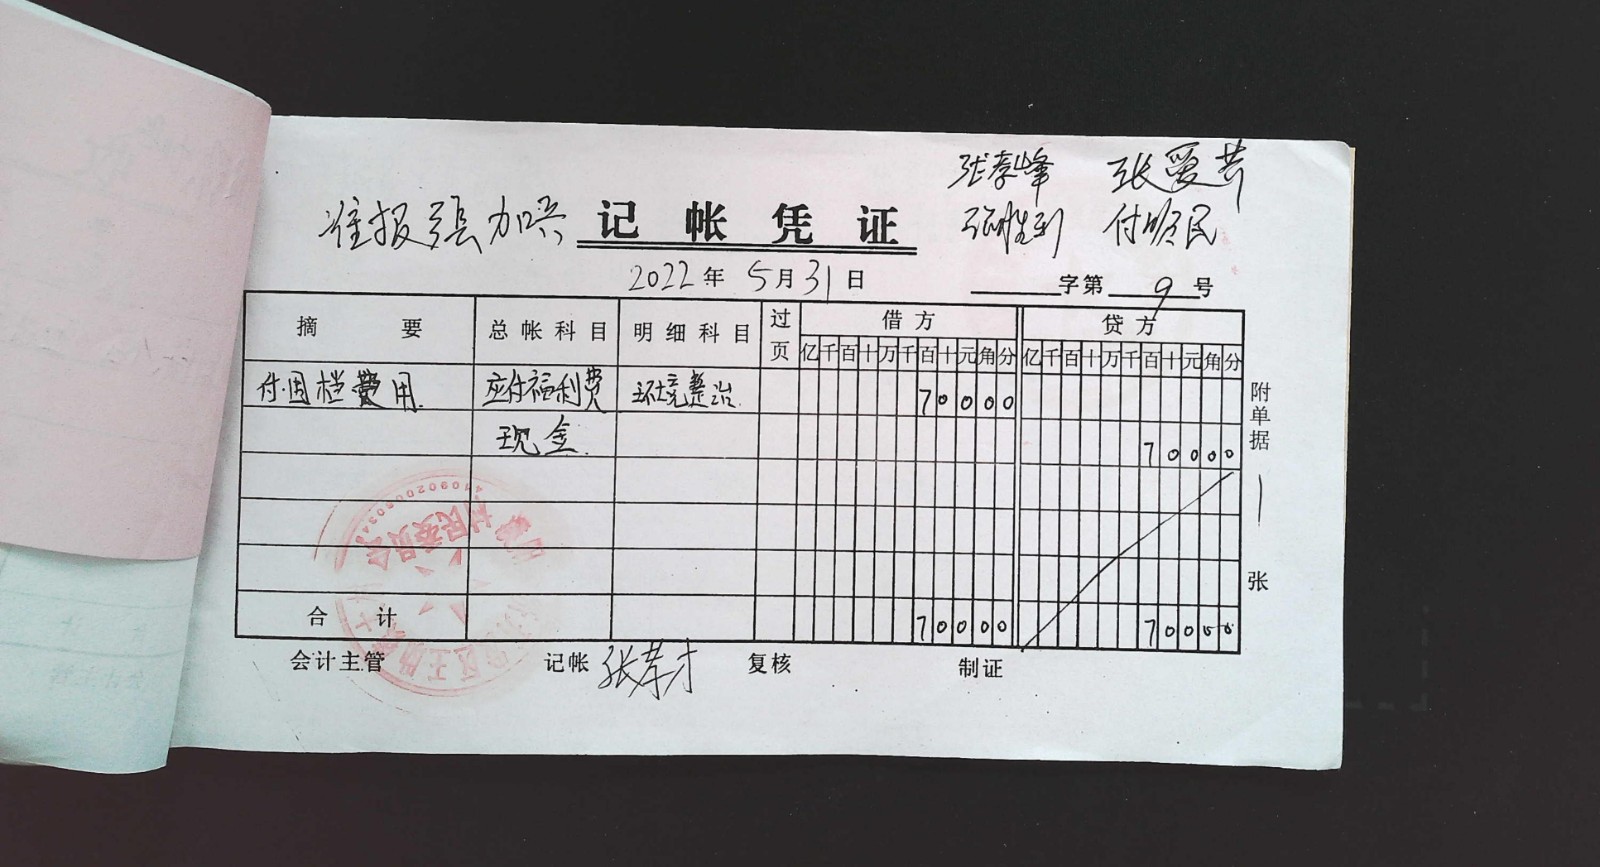 张孝峰 张爱芹
准报 张加兴 记帐凭证 付顺民
2022年5月31日 字第9号
摘要 总帐科目 明细科目 过页 借方 贷方
亿千百十万千百十元角分 亿千百十万千百十元角分
付围档费用 应付福利费 环境整治 70000
现金 70000
附单据 一 张
村民委员会
合计 70000 70000
会计主管 记帐 张孝才 复核 制证